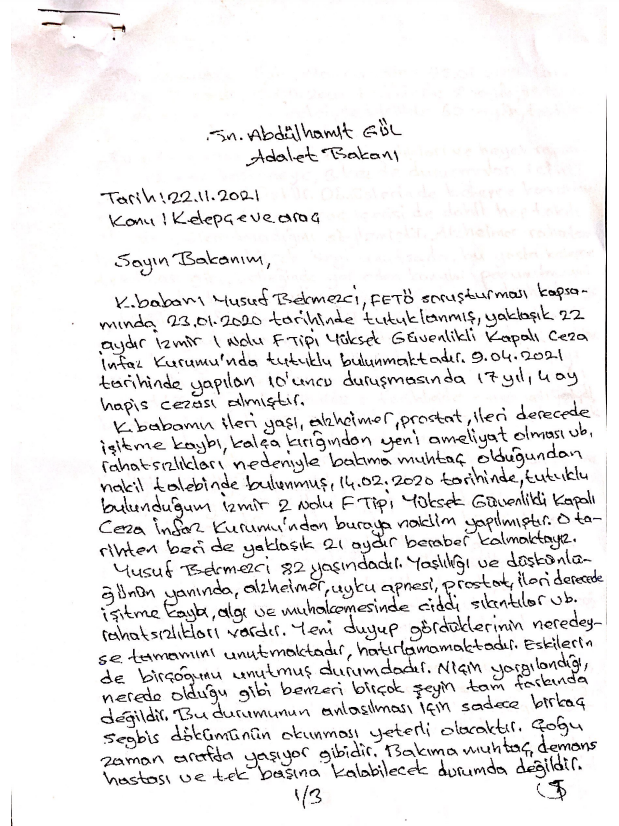 Sn. Abdülhamit GÜL
Adalet Bakanı
Tarih: 22.11.2021
Konu: Kelepçe ve araç
Sayın Bakanım,
K.babam Yusuf Bekmezci, FETÖ soruşturması kapsa-
mında 23.01.2020 tarihinde tutuklanmış, yaklaşık 22
aydır İzmir 1 Nolu F Tipi Yüksek Güvenlikli Kapalı Ceza
İnfaz Kurumu'nda tutuklu bulunmaktadır. 9.04.2021
tarihinde yapılan 10'uncu duruşmasında 17 yıl, 4 ay
hapis cezası almıştır.
K.babamın ileri yaşı, alzheimer, prostat, ileri derecede
işitme kaybı, kalça kırığından yeni ameliyat olması vb.
rahatsızlıkları nedeniyle bakıma muhtaç olduğundan
nakil talebinde bulunmuş, 14.02.2020 tarihinde, tutuklu
bulunduğum İzmir 2 Nolu F Tipi Yüksek Güvenlikli Kapalı
Ceza İnfaz Kurumu'ndan buraya naklim yapılmıştır. O ta-
rihten beri de yaklaşık 21 aydır beraber kalmaktayız.
Yusuf Bekmezci 82 yaşındadır. Yaşlılığı ve düşkünlü-
ğünün yanında, alzheimer, uyku apnesi, prostat, ileri derecede
işitme kaybı, algı ve muhakemesinde ciddi sıkıntılar vb.
rahatsızlıkları vardır. Yeni duyup gördüklerinin neredey-
se tamamını unutmaktadır, hatırlamamaktadır. Eskilerin
de birçoğunu unutmuş durumdadır. Niçin yargılandığı,
nerede olduğu gibi benzeri birçok şeyin tam farkında
değildir. Bu durumunun anlaşılması için sadece birkaç
segbis dökümünün okunması yeterli olacaktır. Çoğu
zaman arafda yaşıyor gibidir. Bakıma muhtaç, demans
hastası ve tek başına kalabilecek durumda değildir.
1/3